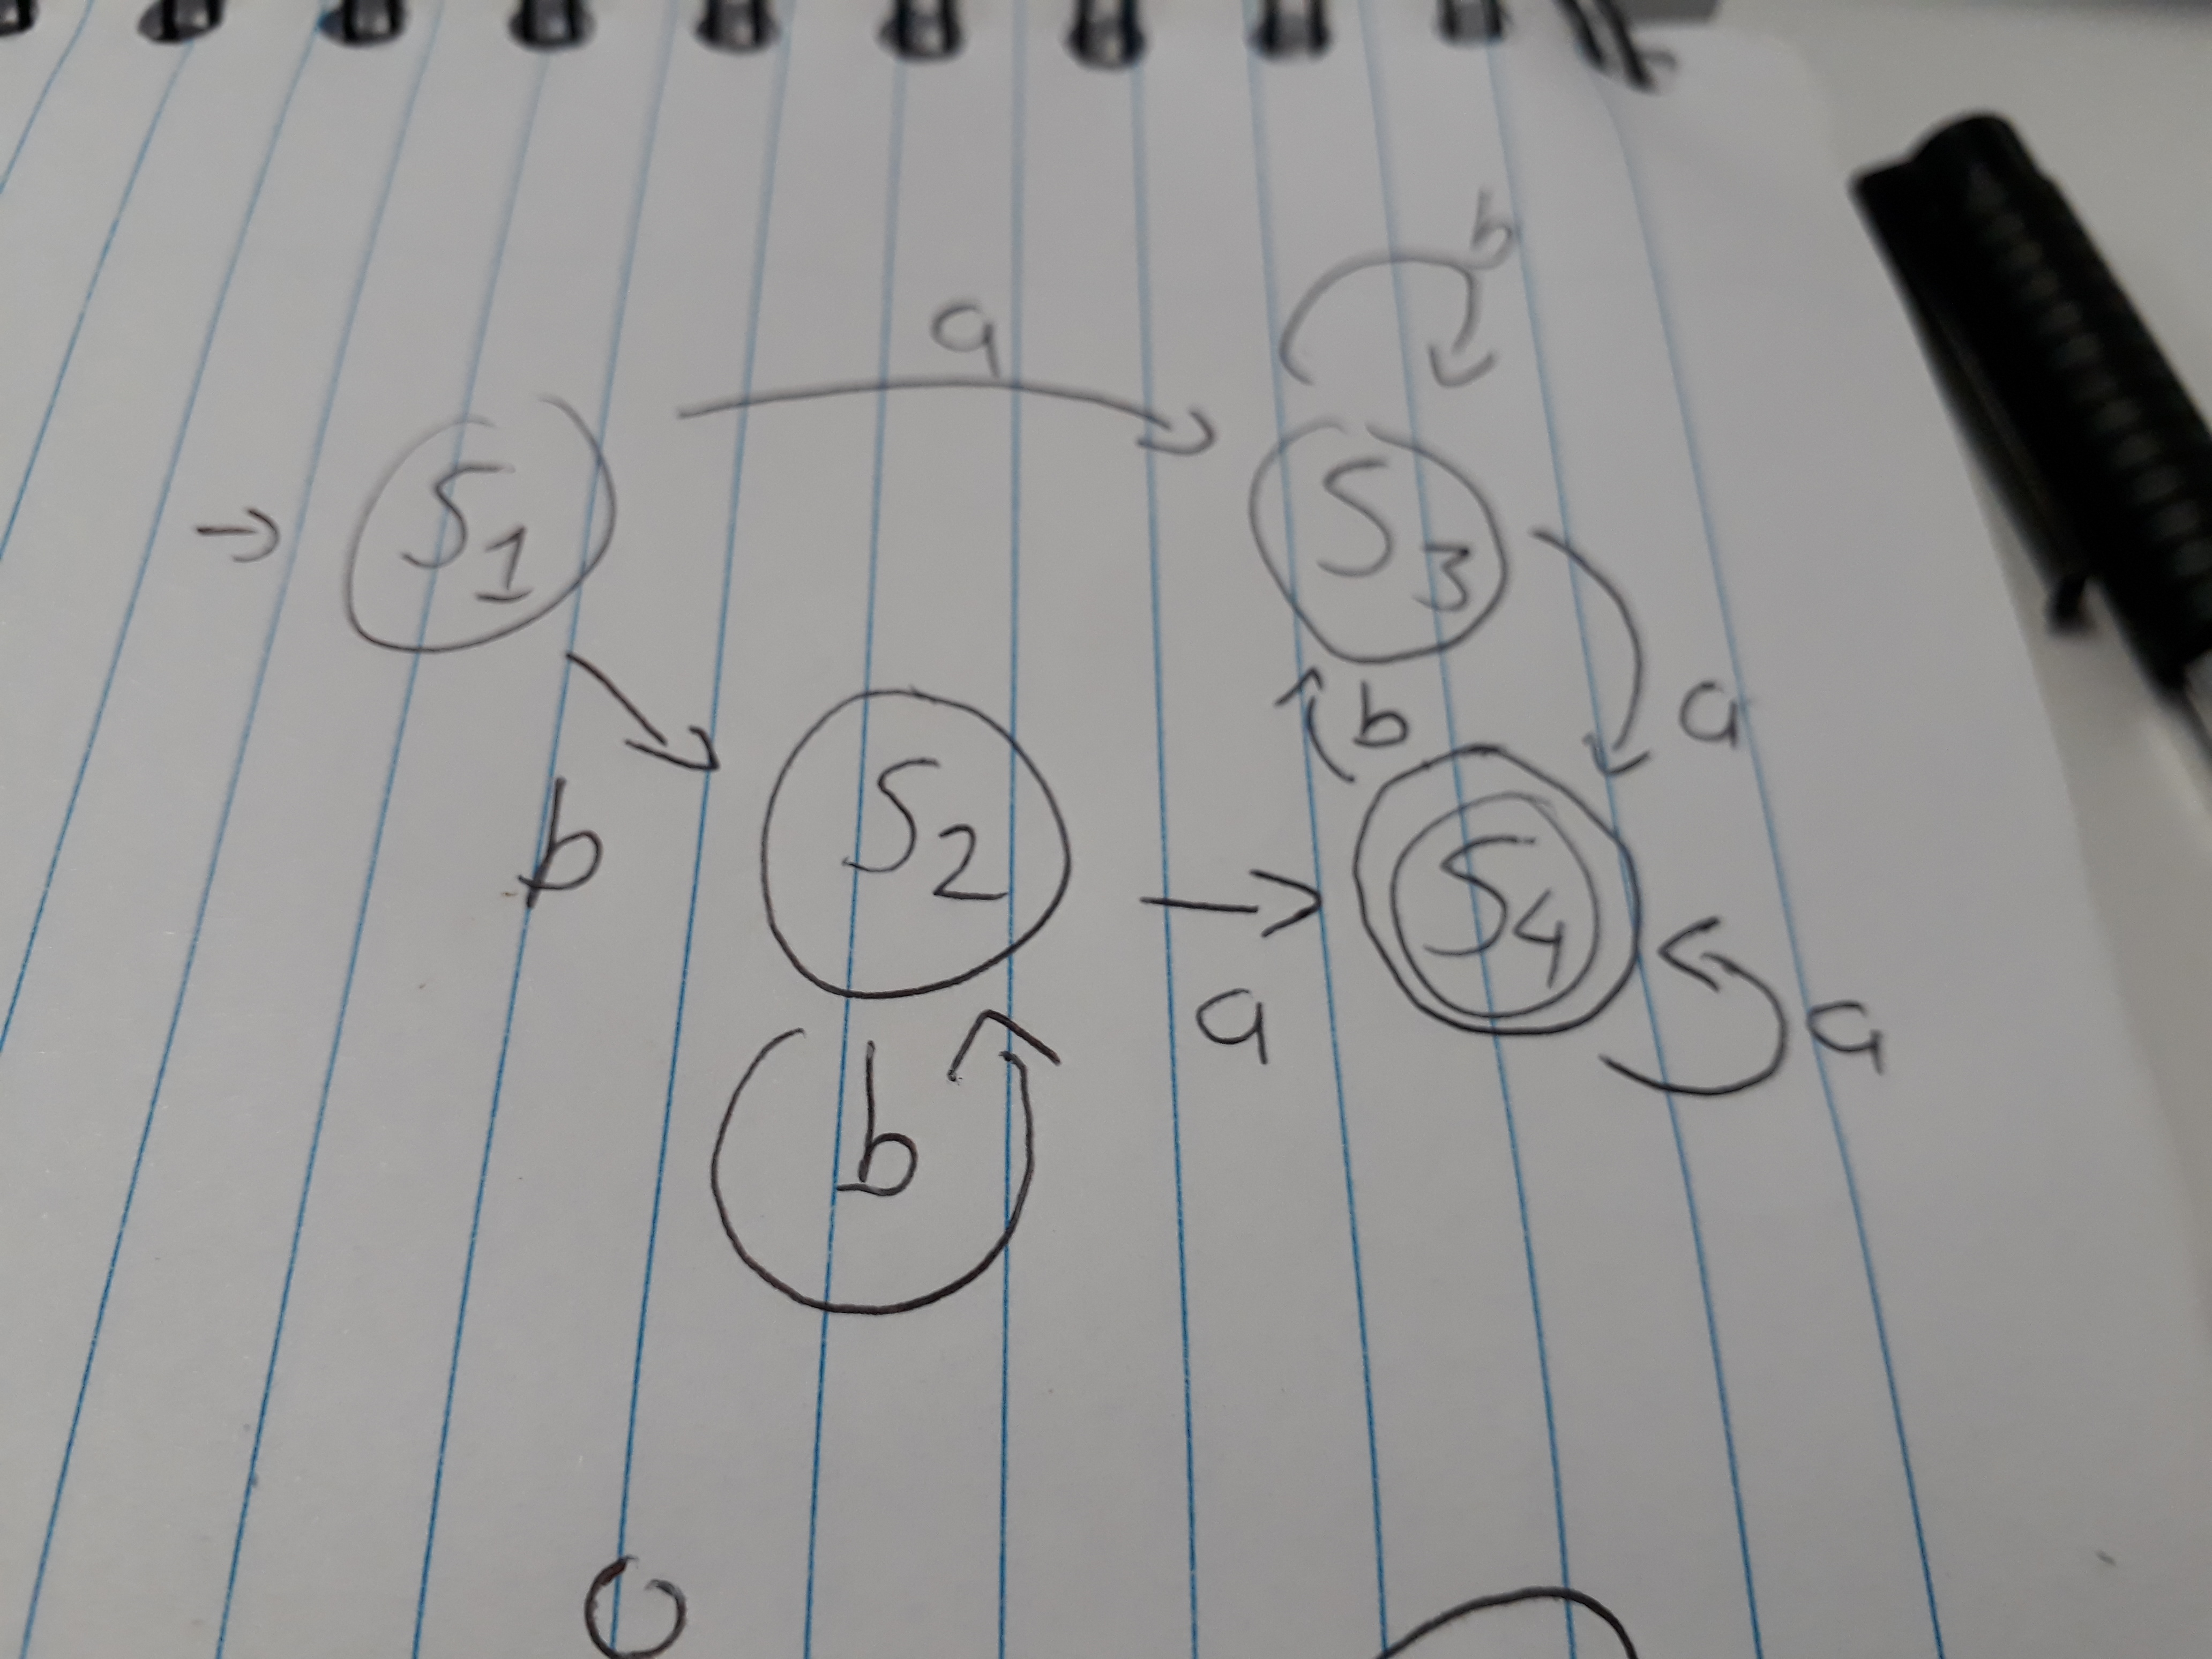 b
a
S1
S3
b
a
S2
b
S4
a
a
b